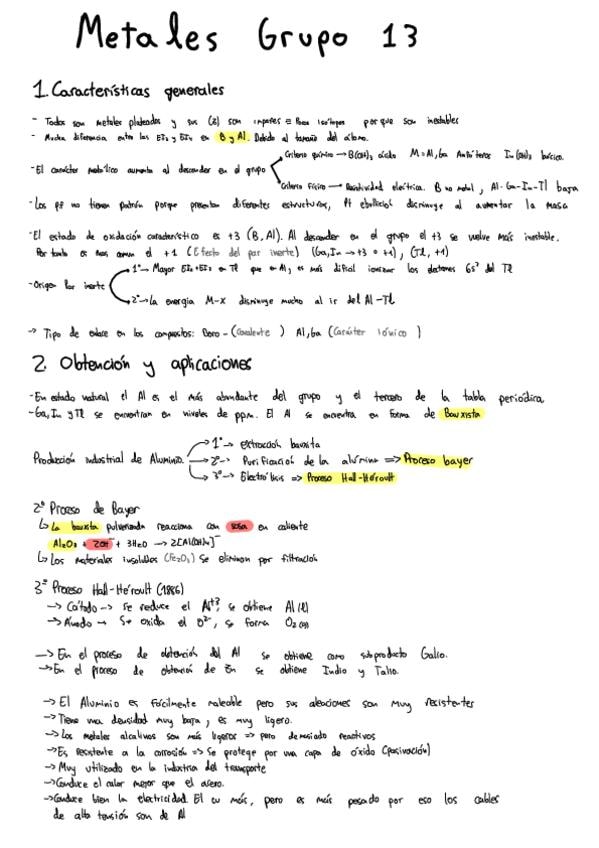 Metales Grupo 13
1. Características generales
- Todos son metales plateados y sus (Z) son impares ≡ Pocos isótopos porque son inestables
- Mucha diferencia entre las EI₁ y EI₂ en B y Al. Debido al tamaño del átomo.
Criterio químico → B(OH)₃ ácido M=Al, Ga Anfóteros In(OH)₃ básico.
- El carácter metálico aumenta al descender en el grupo
Criterio físico → Resistividad eléctrica. B no metal, Al-Ga-In-Tl baja
- Los pf no tienen patrón porque presentan diferentes estructuras, Pt ebullición disminuye al aumentar la masa
- El estado de oxidación característico es +3 (B, Al). Al descender en el grupo el +3 se vuelve más inestable.
Por tanto es mas comun el +1 (Efecto del par inerte) (Ga, In → +3 o +1), (Tl, +1)
1º → Mayor EI₂+EI₃ en Tl que en Al, es más difícil ionizar los electrones 6s² del Tl
- Origen Par inerte
2º → la energia M-X disminuye mucho al ir del Al-Tl
→ Tipo de enlace en los compuestos: Boro - (Covalente) Al, Ga (Carácter iónico)
2. Obtención y aplicaciones
- En estado natural el Al es el más abundante del grupo y el tercero de la tabla periódica
- Ga, In y Tl se encuentran en niveles de ppm. El Al se encuentra en forma de Bauxista
1º → extracción bauxita
Producción industrial de Aluminio. 2º → Purificación de la alúmina => Proceso bayer
3º → Electrólisis => Proceso Hall-Héroult
2º Proceso de Bayer
↳ La bauxista pulverizada reacciona con sosa en caliente
Al₂O₃ + 2OH⁻ + 3H₂O → 2[Al(OH)₄]⁻
↳ Los materiales insolubles (Fe₂O₃) se eliminan por filtración
3º Proceso Hall-Héroult (1886)
→ Cátodo → Se reduce el Al⁺³, se obtiene Al(l)
→ Ánodo → Se oxida el O²⁻, se forma O₂(g)
→ En el proceso de obtención del Al se obtiene como subproducto Galio.
→ En el proceso de obtención de Zn se obtiene Indio y Talio.
→ El Aluminio es fácilmente maleable pero sus aleaciones son muy resistentes
→ Tiene una densidad muy baja, es muy ligero.
→ Los metales alcalinos son más ligeros => pero demasiado reactivos
→ Es resistente a la corrosión => Se protege por una capa de óxido (pasivación)
→ Muy utilizado en la industria del transporte
→ Conduce el calor mejor que el acero.
→ Conduce bien la electricidad. El cu más, pero es más pesado por eso los cables
de alta tensión son de Al